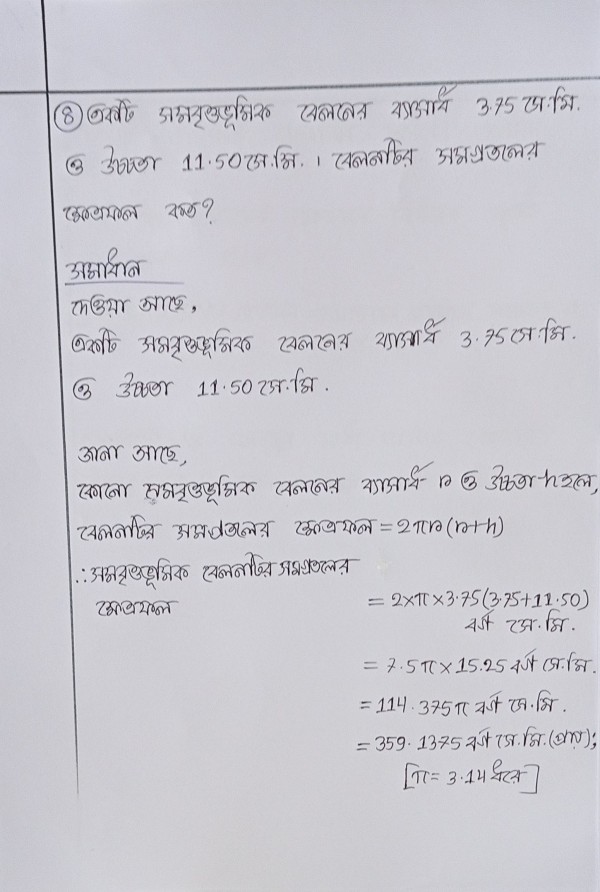 ৪ একটি সমবৃত্তভূমিক বেলনের ব্যাসার্ধ 3.75 সে.মি.
ও উচ্চতা 11.50 সে.মি. । বেলনটির সমগ্রতলের
ক্ষেত্রফল কত?
সমাধান
দেওয়া আছে,
একটি সমবৃত্তভূমিক বেলনের ব্যাসার্ধ 3.75 সে.মি.
ও উচ্চতা 11.50 সে.মি.
জানা আছে,
কোনো সমবৃত্তভূমিক বেলনের ব্যাসার্ধ r ও উচ্চতা h হলে,
বেলনটির সমগ্রতলের ক্ষেত্রফল = 2πr(r+h)
∴ সমবৃত্তভূমিক বেলনটির সমগ্রতলের
ক্ষেত্রফল = 2×π×3.75(3.75+11.50)
বর্গ সে.মি.
= 7.5π×15.25 বর্গ সে.মি.
= 114.375π বর্গ সে.মি.
= 359.1375 বর্গ সে.মি. (প্রায়);
[π = 3.14 ধরে]